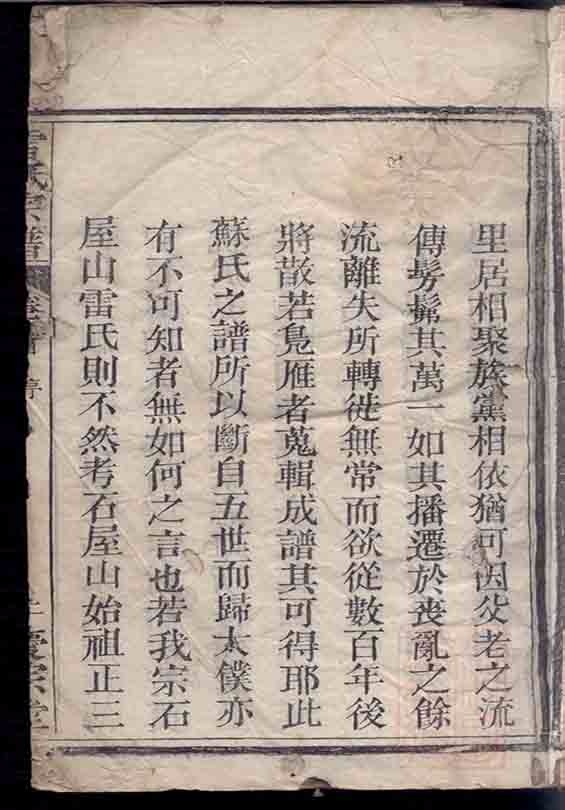 里居相聚族黨相依猶可因父老之流
傳髣髴其萬一如其播遷於喪亂之餘
流離失所轉徙無常而欲從數百年後
將散若鳧雁者蒐輯成譜其可得耶此
蘇氏之譜所以斷自五世而歸太僕亦
有不可知者無如何之言也若我宗石
屋山雷氏則不然考石屋山始祖正三
氏宗譜